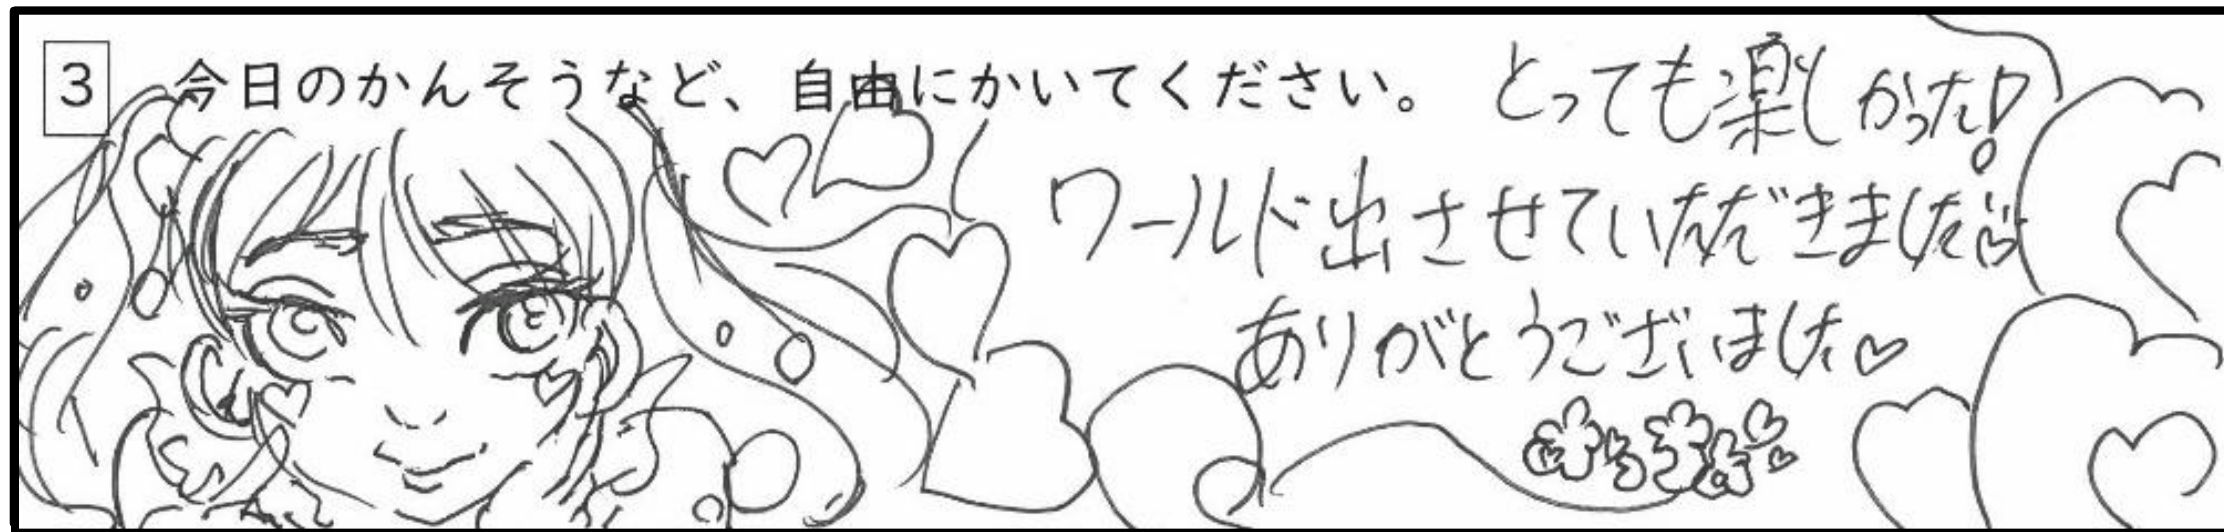 3 今日のかんそうなど、自由にかいてください。 とっても楽しかった!
ワールド出させていただきました♡
ありがとうございました♡